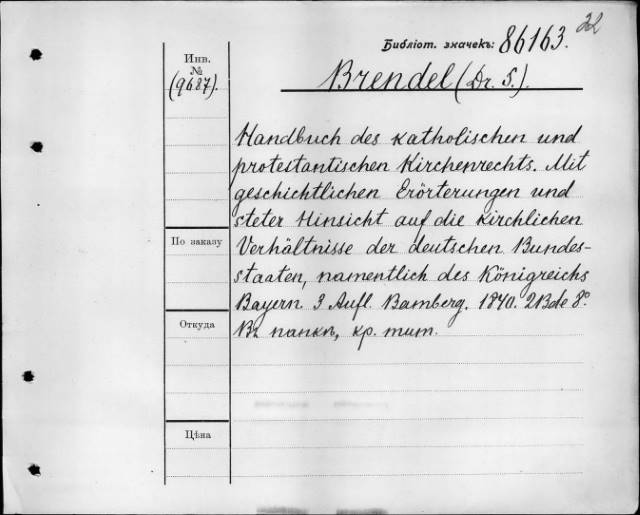 22
Библіот. значекъ: 86163.
Инв.
№
(9687).
Brendel (Dr. S.)
Handbuch des katholischen und
protestantischen Kirchenrechts. Mit
geschichtlichen Erörterungen und
steter Hinsicht auf die kirchlichen
По заказу
Verhältnisse der deutschen Bundes-
staaten, namentlich des Königreichs
Bayern. 3 Aufl. Bamberg. 1840. 2Bde 8º.
Откуда
Въ папкъ, кр. тит.
Цѣна